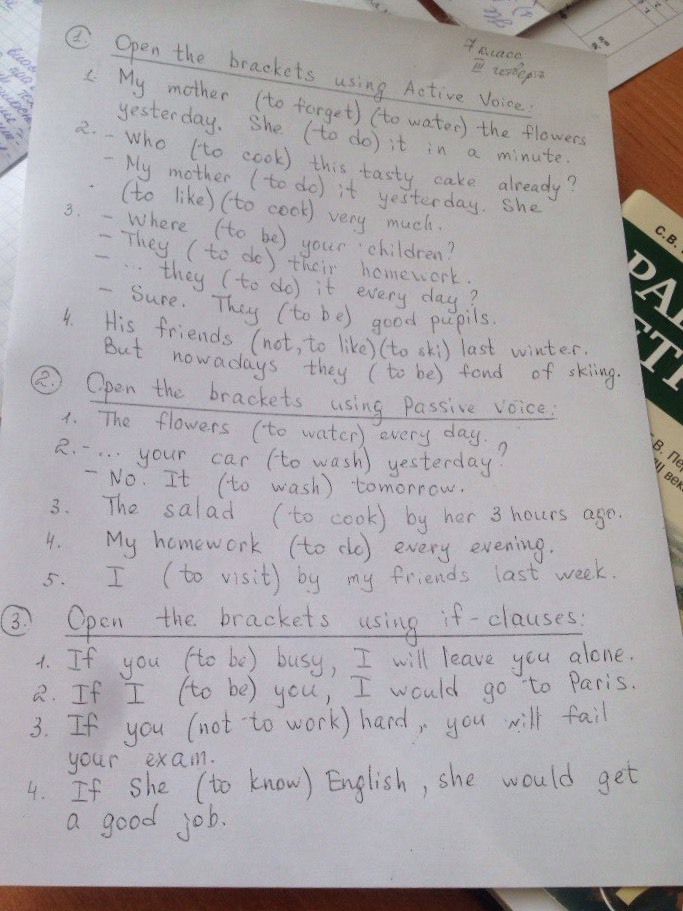 7 класс
III четверть
① Open the brackets using Active Voice:
1. My mother (to forget) (to water) the flowers
yesterday. She (to do) it in a minute.
2. - Who (to cook) this tasty cake already?
- My mother (to do) it yesterday. She
(to like) (to cook) very much.
3. - Where (to be) your children?
- They (to do) their homework.
- ... they (to do) it every day?
- Sure. They (to be) good pupils.
4. His friends (not, to like) (to ski) last winter.
But nowadays they (to be) fond of skiing.
② Open the brackets using Passive Voice:
1. The flowers (to water) every day.
2. - ... your car (to wash) yesterday?
- No. It (to wash) tomorrow.
3. The salad (to cook) by her 3 hours ago.
4. My homework (to do) every evening.
5. I (to visit) by my friends last week.
③ Open the brackets using if-clauses:
1. If you (to be) busy, I will leave you alone.
2. If I (to be) you, I would go to Paris.
3. If you (not to work) hard, you will fail
your exam.
4. If she (to know) English, she would get
a good job.
С.В.